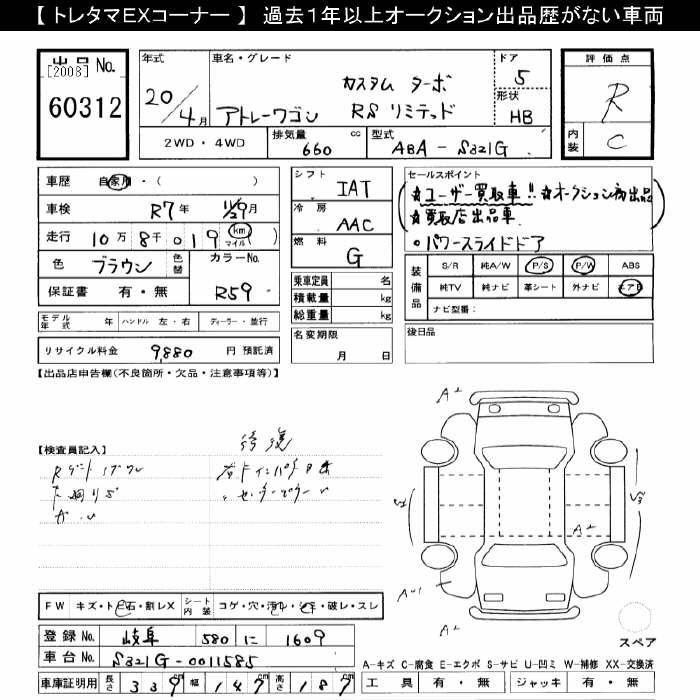 【 トレタマEXコーナー 】 過去１年以上オークション出品歴がない車両
出品 No.
[2008]
60312
年式
20/4月
車名・グレード
アトレーワゴン
カスタム ターボ
RS リミテッド
ドア
5
形状
HB
評価点
R
内装
C
2WD ・ 4WD
排気量
660 cc
型式
ABA - S321G
車歴
自家用 ・ ( )
車検
R7年 11/29月
走行
10万8千019 km マイル
色
ブラウン
色替
カラーNo.
R59
保証書 有・無
モデル年式 年
ハンドル 左・右
ディーラー・並行
リサイクル料金 9,880 円 預託済
シフト
IAT
冷房
AAC
燃料
G
乗車定員 名
積載量 kg
総重量 kg
名変期限
月 日
セールスポイント
(☆ユーザー買取車!! ☆オークション初出品
☆買取店出品車 )
○パワースライドドア
装備品
S/R 純A/W P/S P/W ABS
純TV 純ナビ 革シート 外ナビ エアB
ナビ型番：
後日品
【出品店申告欄(不良箇所・欠品・注意事項等)】
【検査員記入】
修復
A2
A2
A2
FW キズ・ト・ヒ石・割レX
シート内装 コゲ・穴・汚レ・シミ・破レ・スレ
登録 No. 岐阜 580 に 1609
車台 No. S321G-0011585
車庫証明用 長さ 339cm 幅 147cm 高さ 187cm
スペア
A-キズ C-腐食 E-エクボ S-サビ U-凹ミ W-補修 XX-交換済
工具 有・無 ジャッキ 有・無